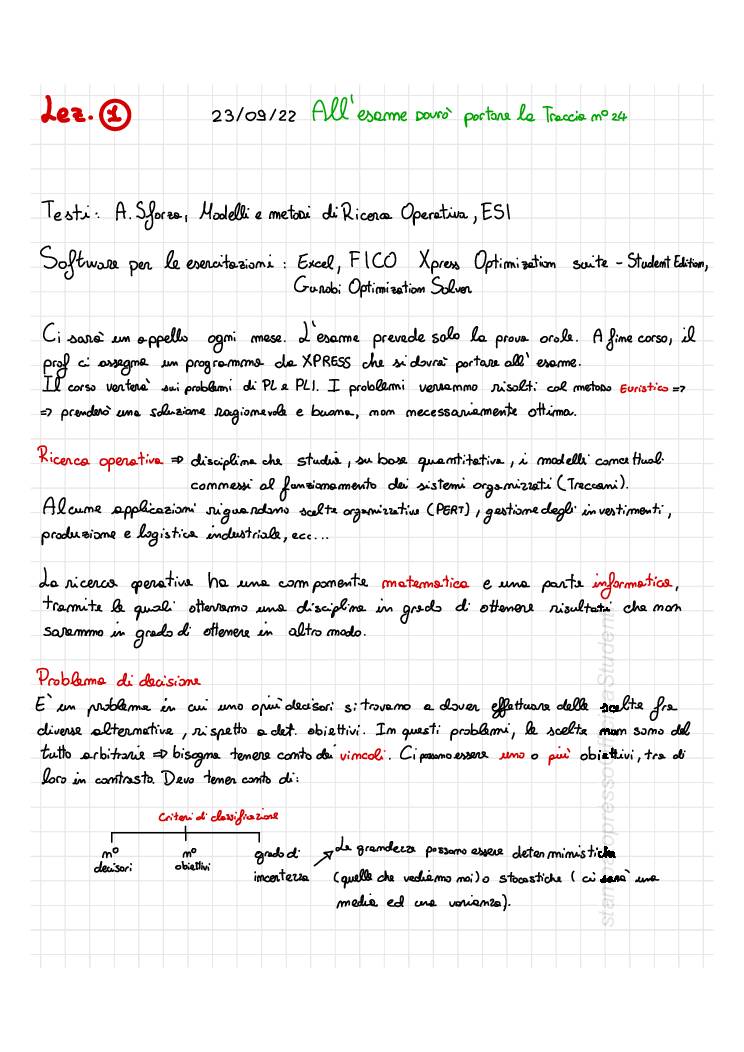 Lez. 1 23/09/22 All'esame dovrò portare la Traccia n° 24
Testi: A. Sforza, Modelli e metodi di Ricerca Operativa, ESI
Software per le esercitazioni: Excel, FICO Xpress Optimization suite - Student Edition,
Gurobi Optimization Solver
Ci sarà un appello ogni mese. L'esame prevede solo la prova orale. A fine corso, il
prof ci assegna un programma da XPRESS che si dovrà portare all'esame.
Il corso verterà sui problemi di PL e PLI. I problemi verranno risolti col metodo Euristico =>
=> prenderò una soluzione ragionevole e buona, non necessariamente ottima.
Ricerca operativa => disciplina che studia, su base quantitativa, i modelli concettuali
connessi al funzionamento dei sistemi organizzati (Treccani).
Alcune applicazioni riguardano scelte organizzative (PERT), gestione degli investimenti,
produzione e logistica industriale, ecc...
La ricerca operativa ha una componente matematica e una parte informatica,
tramite le quali otterremo una disciplina in grado di ottenere risultati che non
saremmo in grado di ottenere in altro modo.
Problema di decisione
E' un problema in cui uno o più decisori si trovano a dover effettuare delle scelte fra
diverse alternative, rispetto a det. obiettivi. In questi problemi, le scelte non sono del
tutto arbitrarie => bisogna tenere conto dei vincoli. Ci possono essere uno o più obiettivi, tra di
loro in contrasto. Devo tener conto di:
Criteri di classificazione
n° decisori
n° obiettivi
grado di incertezza
Le grandezze possono essere deterministiche
(quelle che vediamo noi) o stocastiche (ci sarà una
media ed una varianza).